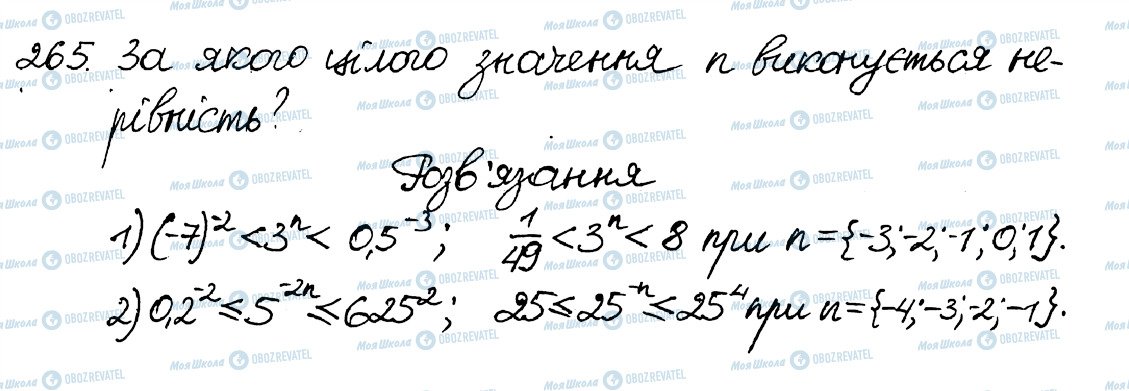 265. За якого цілого значення n виконується не-
рівність?
Розв'язання
1) (-7)^-2 < 3^n < 0,5^-3; 1/49 < 3^n < 8 при n = {-3; -2; -1; 0; 1}.
2) 0,2^-2 ≤ 5^-2n ≤ 625^2; 25 ≤ 25^-n ≤ 25^4 при n = {-4; -3; -2; -1}.